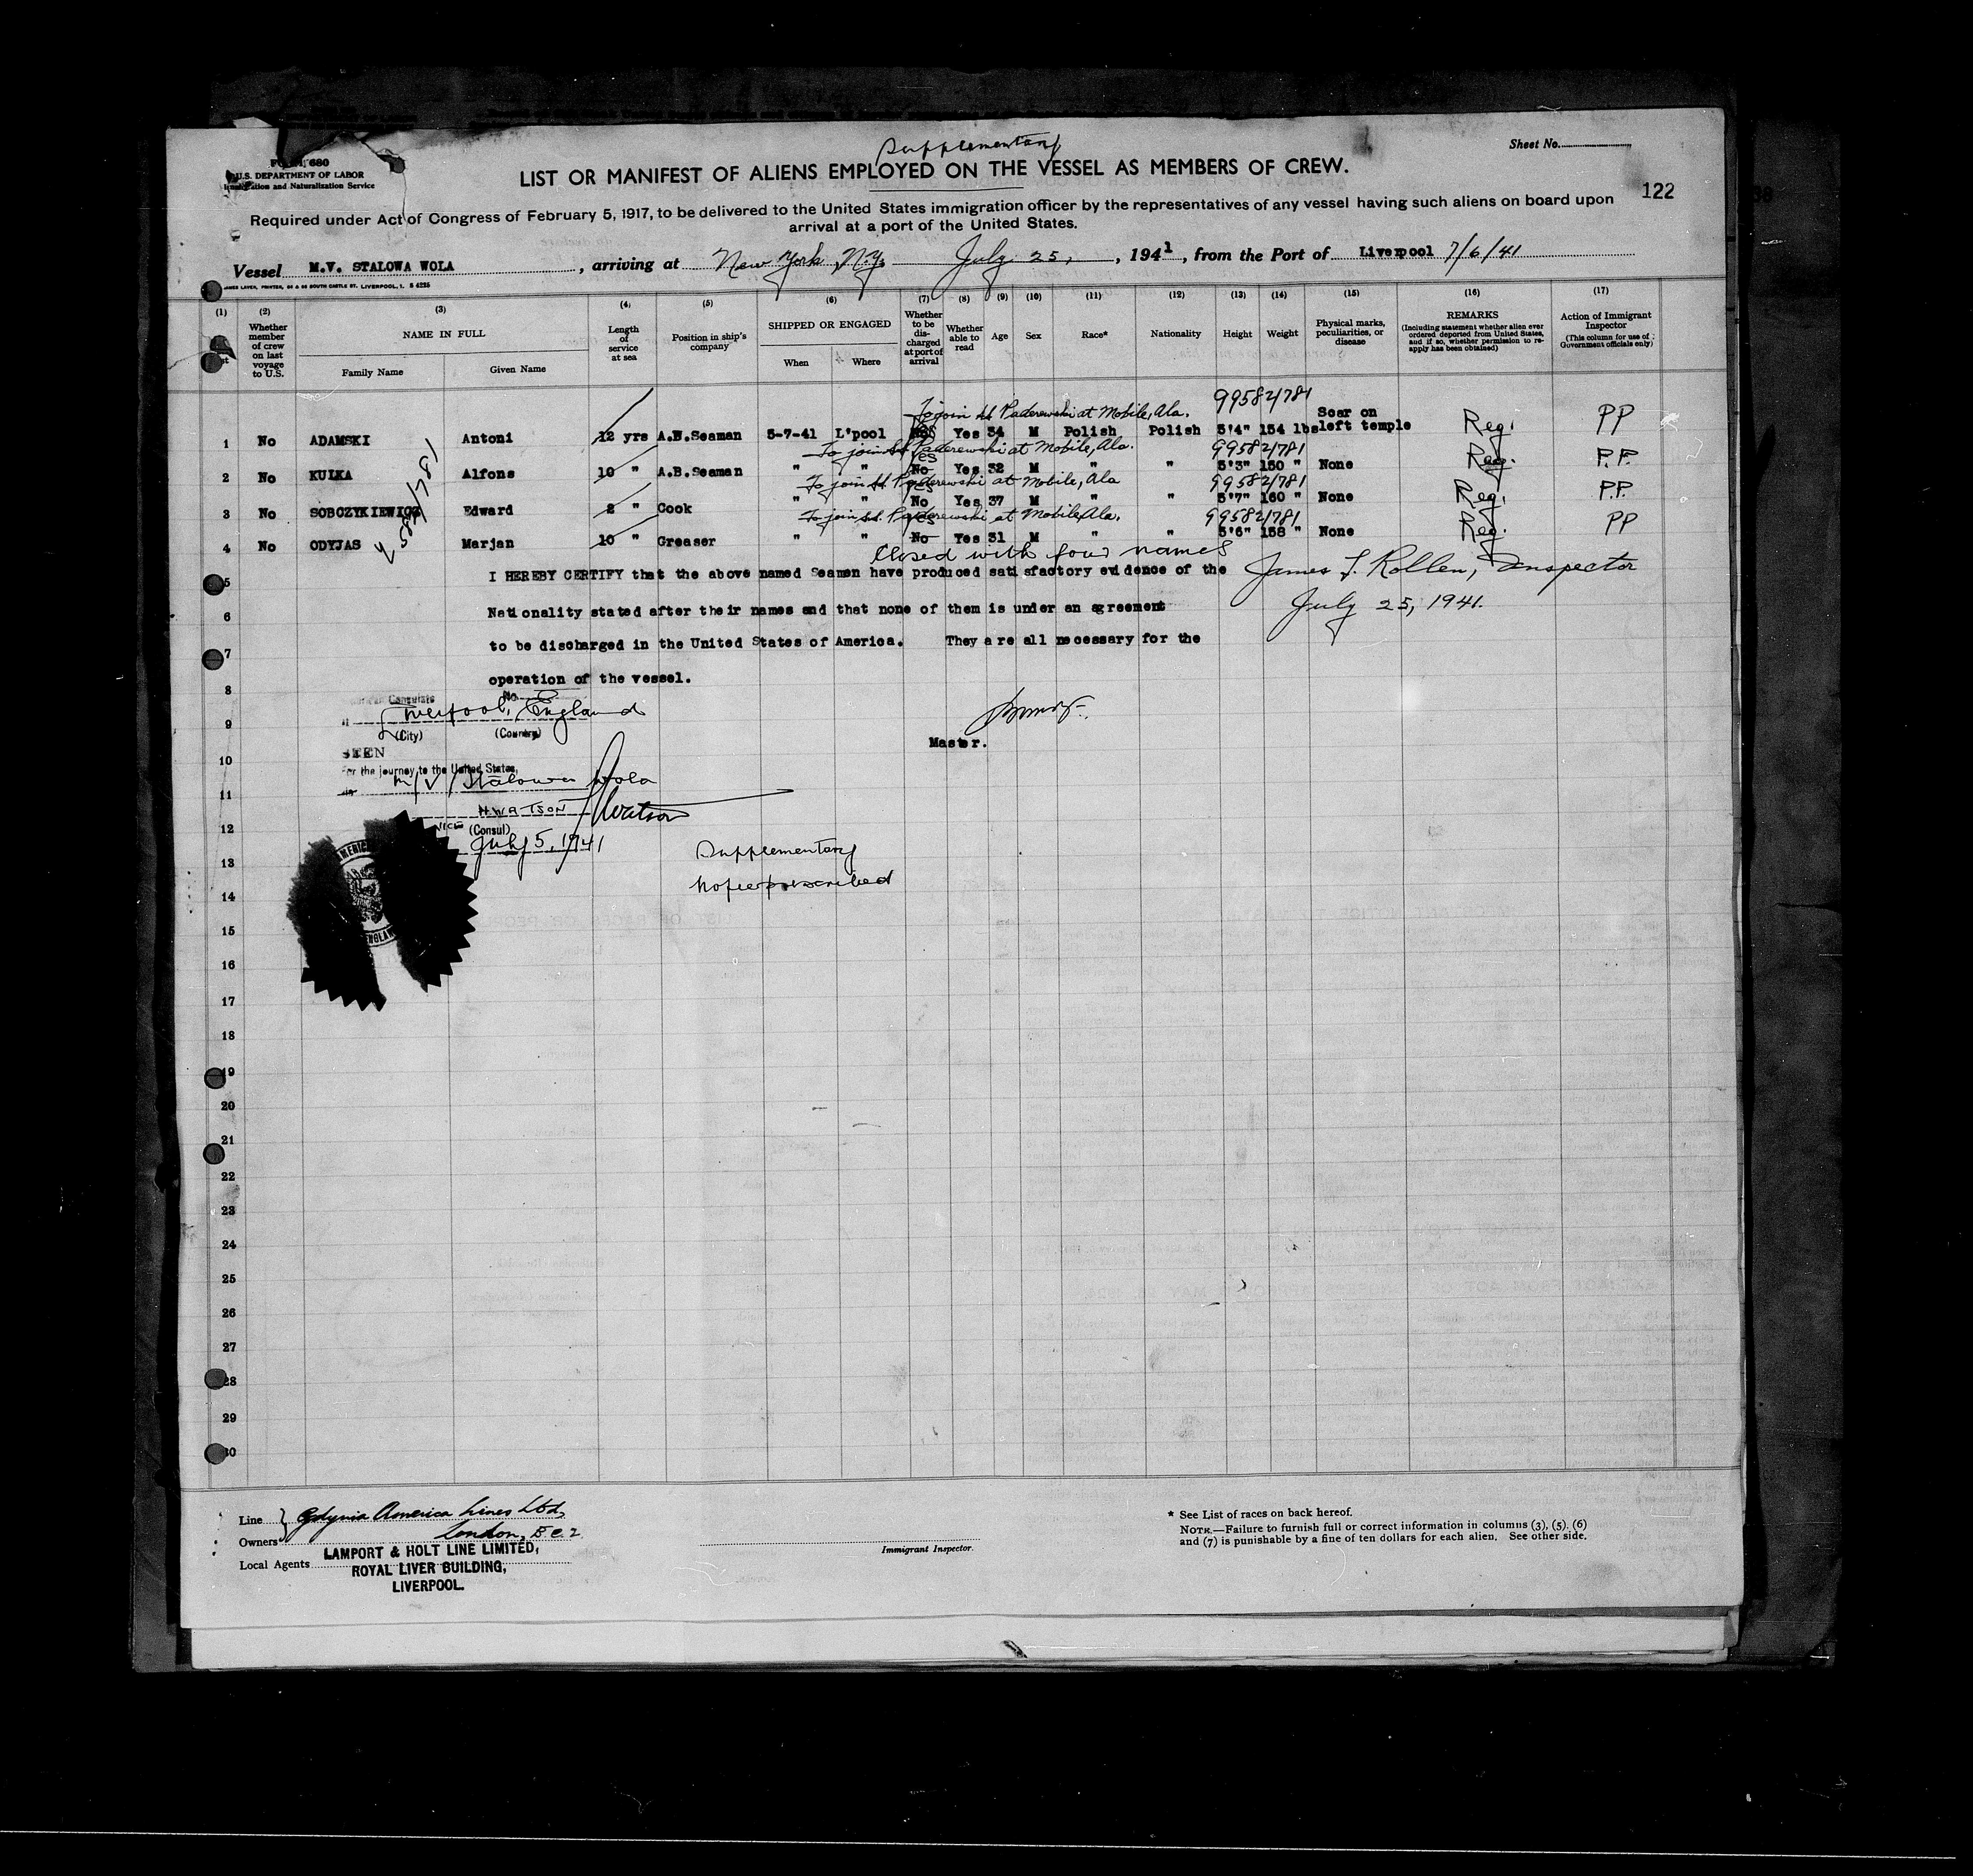 Supplementary
Sheet No.
FORM 680
U.S. DEPARTMENT OF LABOR
Immigration and Naturalization Service
LIST OR MANIFEST OF ALIENS EMPLOYED ON THE VESSEL AS MEMBERS OF CREW.
122
Required under Act of Congress of February 5, 1917, to be delivered to the United States immigration officer by the representatives of any vessel having such aliens on board upon
arrival at a port of the United States.
Vessel M.V. STALOWA WOLA, arriving at New York, N.Y. July 25, 1941, from the Port of Liverpool 7/6/41
JAMES LAVER, PRINTER, 64 & 66 SOUTH CASTLE ST. LIVERPOOL, 1. S 4235
(1) (2) (3) (4) (5) (6) (7) (8) (9) (10) (11) (12) (13) (14) (15) (16) (17)
Whether member of crew on last voyage to U.S.
NAME IN FULL
Family Name Given Name
Length of service at sea
Position in ship's company
SHIPPED OR ENGAGED
When Where
Whether to be discharged at port of arrival
Whether able to read
Age Sex Race* Nationality Height Weight
Physical marks, peculiarities, or disease
REMARKS
(Including statement whether alien ever ordered deported from United States, and if so, whether permission to reapply has been obtained)
Action of Immigrant Inspector
(This column for use of Government officials only)
To join SS Paderewski at Mobile, Ala. 99582/781
1 No ADAMSKI Antoni 12 yrs A.B.Seaman 5-7-41 L'pool Yes 34 M Polish Polish 5'4" 154 lbs Scar on left temple Reg. PP
To join SS Paderewski at Mobile, Ala. 99582/781
yes
2 No KULKA Alfons 10 " A.B.Seaman " " No Yes 32 M " " 5'3" 150 " None Reg. P.P.
To join SS Paderewski at Mobile, Ala 99582/781
yes
3 No SOBCZYKIEWICZ Edward 2 " Cook " " No Yes 37 M " " 5'7" 160 " None Reg. P.P.
To join SS. Paderewski at Mobile Ala. 99582/781
yes
4 No ODYJAS Marjan 10 " Greaser " " No Yes 31 M " " 5'6" 158 " None Reg. PP
Closed with four names
5 I HEREBY CERTIFY that the above named Seamen have produced satisfactory evidence of the
James F. Rollen, Inspector
July 25, 1941.
6 Nationality stated after their names and that none of them is under an agreement
7 to be discharged in the United States of America. They are all necessary for the
operation of the vessel.
8
Consulate No.
9 Liverpool, England
(City) (Country)
Master.
10
SEEN
For the journey to the United States,
M/V Stalowa Wola
11
H. WATSON H Watson
12 VICE (Consul)
July 5, 1941
Supplementary
13
No fee prescribed
14
15
16
17
18
19
20
21
22
23
24
25
26
27
28
29
30
Line
Owners
Gdynia America Lines Ltd,
London, E.C.2.
Local Agents LAMPORT & HOLT LINE LIMITED,
ROYAL LIVER BUILDING,
LIVERPOOL.
Immigrant Inspector.
* See List of races on back hereof.
NOTE.—Failure to furnish full or correct information in columns (3), (5), (6)
and (7) is punishable by a fine of ten dollars for each alien. See other side.